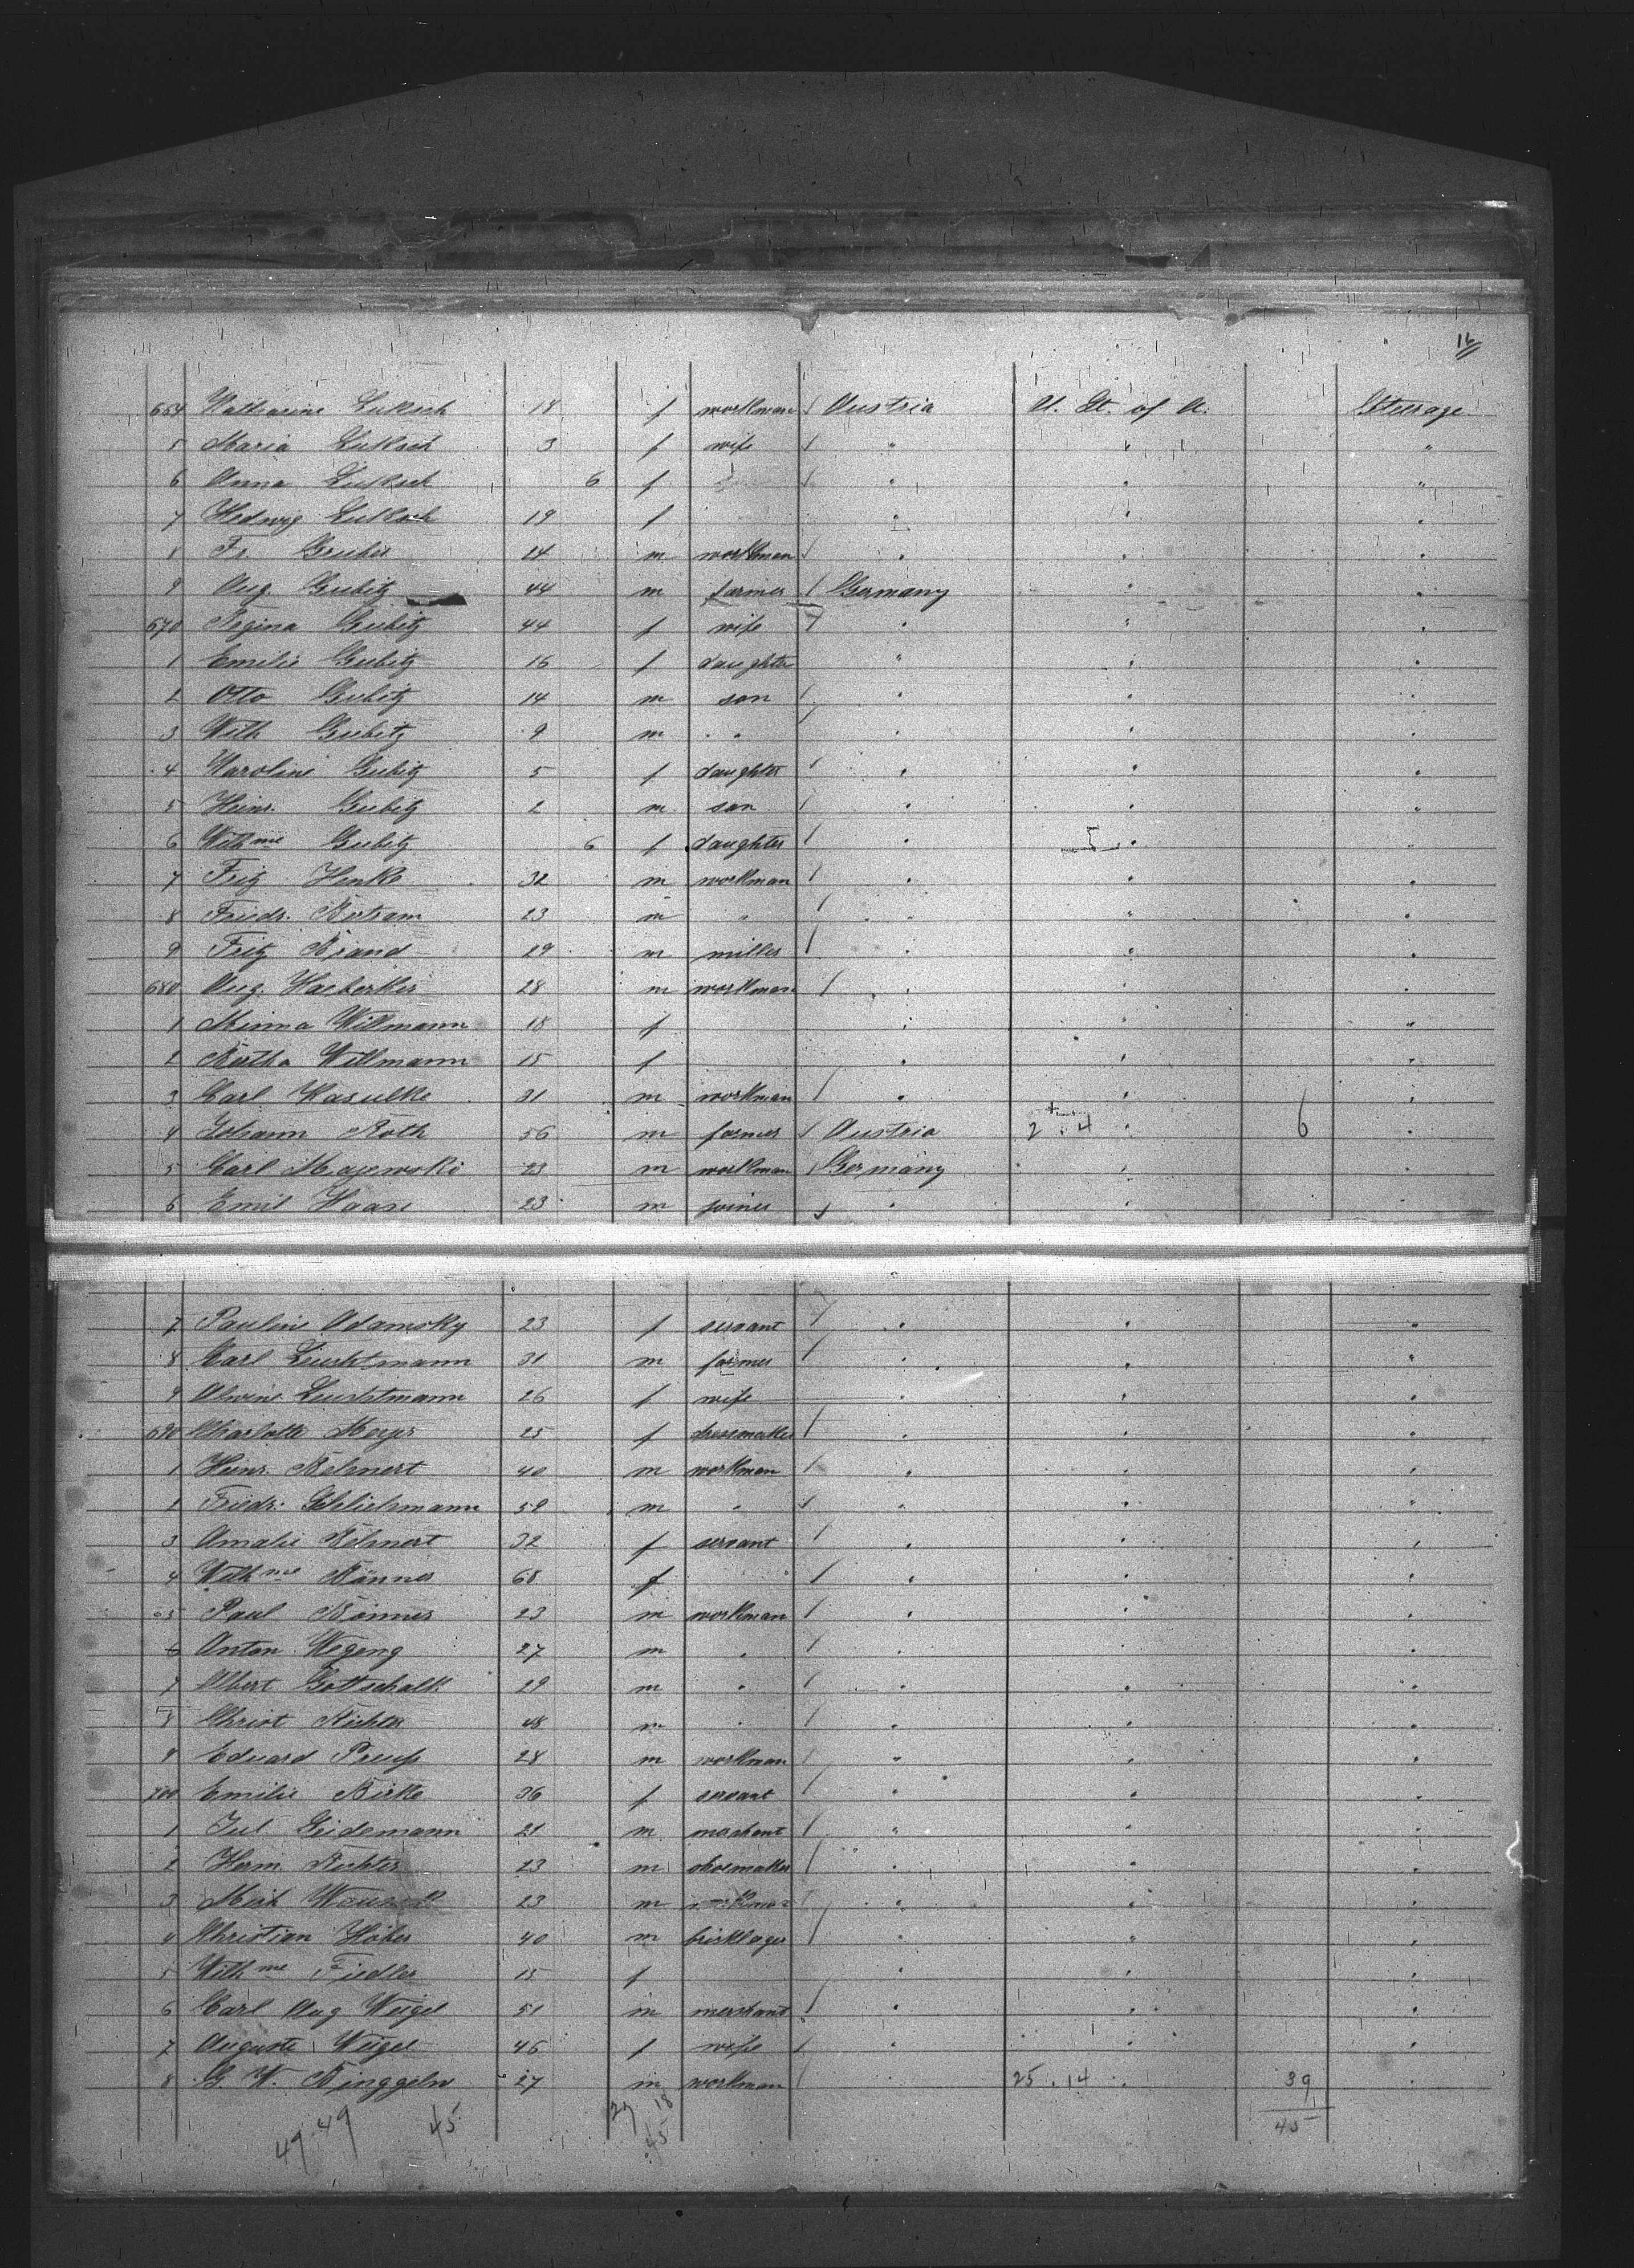 16
664 Katharine Luksch 18 f workman Austria U. St. of A. Steerage
5 Maria Luksch 3 f wife " " "
6 Anna Luksch 6 f " " "
7 Hedwig Luksch 19 f " " "
8 Fr. Gruber 14 m workman " " "
9 Aug. Gubitz 44 m farmer Germany " "
670 Regina Gubitz 44 f wife " " "
1 Emilie Gubitz 16 f daughter " " "
2 Otto Gubitz 14 m son " " "
3 Wilh Gubitz 9 m " " " "
4 Karoline Gubitz 5 f daughter " " "
5 Heinr. Gubitz 2 m son " " "
6 Wilhme Gubitz 6 f daughter " 5 " "
7 Fritz Henke 32 m workman " " "
8 Friedr. Bertram 23 m " " " "
9 Fritz Brand 29 m miller " " "
680 Aug. Haeberker 28 m workman " " "
1 Minna Willmann 18 f " " "
2 Bertha Willmann 15 f " " "
3 Carl Kasulke 31 m workman " " "
4 Johann Roth 56 m farmer Austria 2 . 4 " 6 "
5 Carl Majewski 23 m workman Germany " "
6 Emil Haase 23 m joiner " " "
7 Pauline Adamsky 23 f servant " " "
8 Carl Leuchtmann 31 m farmer " " "
9 Alwine Leuchtmann 26 f wife " " "
690 Charlotte Meyer 25 f dressmaker " " "
1 Heinr. Behnert 40 m workman " " "
1 Friedr. Schlichmann 59 m " " " "
3 Amalie Behnert 32 f servant " " "
4 Wilhme Bönner 68 f " " "
5 Paul Bönner 23 m workman " " "
6 Anton Wegeng 27 m " " " "
7 Albert Gottschalk 29 m " " " "
8 Christ Richter 48 m " " " "
9 Eduard Preuß 28 m workman " " "
700 Emilie Birke 36 f servant " " "
1 Jul Seidemann 21 m merchant " " "
2 Herm. Richter 23 m shoemaker " " "
3 Mich 23 m workman " " "
4 Christian Höber 40 m bricklayer " " "
5 Wilhme Fiedler 15 f " " "
6 Carl Aug Weigel 51 m merchant " " "
7 Auguste Weigel 46 f wife " " "
8 G. W. Ringgeln 27 m workman " 25 . 14 " 39 "
49 49 45 27 18 45 45